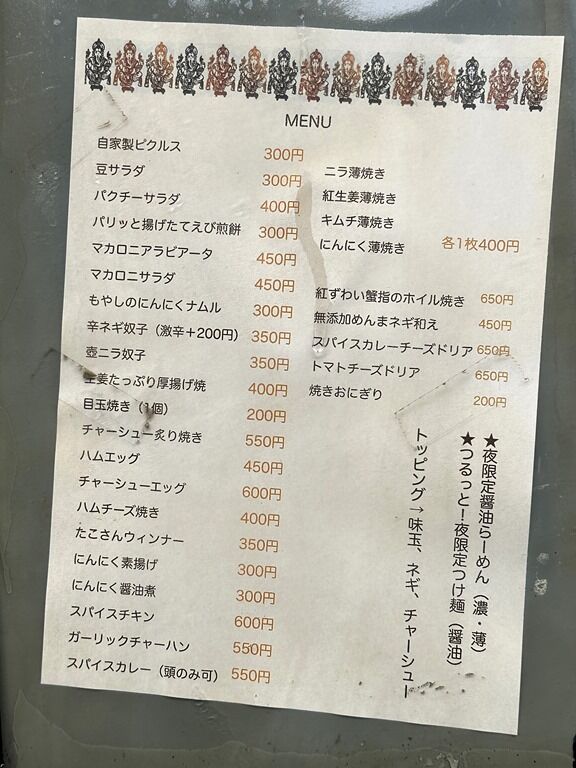 MENU
自家製ピクルス 300円
豆サラダ 300円
パクチーサラダ 400円
パリッと揚げたてえび煎餅 300円
マカロニアラビアータ 450円
マカロニサラダ 450円
もやしのにんにくナムル 300円
辛ネギ奴子（激辛＋200円） 350円
壺ニラ奴子 350円
生姜たっぷり厚揚げ焼 400円
目玉焼き（1個） 200円
チャーシュー炙り焼き 550円
ハムエッグ 450円
チャーシューエッグ 600円
ハムチーズ焼き 400円
たこさんウィンナー 350円
にんにく素揚げ 300円
にんにく醤油煮 300円
スパイスチキン 600円
ガーリックチャーハン 550円
スパイスカレー（頭のみ可） 550円
ニラ薄焼き
紅生姜薄焼き
キムチ薄焼き
にんにく薄焼き 各1枚400円
紅ずわい蟹指のホイル焼き 650円
無添加めんまネギ和え 450円
スパイスカレーチーズドリア 650円
トマトチーズドリア 650円
焼きおにぎり 200円
★夜限定醤油らーめん（濃・薄）
★つるっと！夜限定つけ麺（醤油）
トッピング→味玉、ネギ、チャーシュー